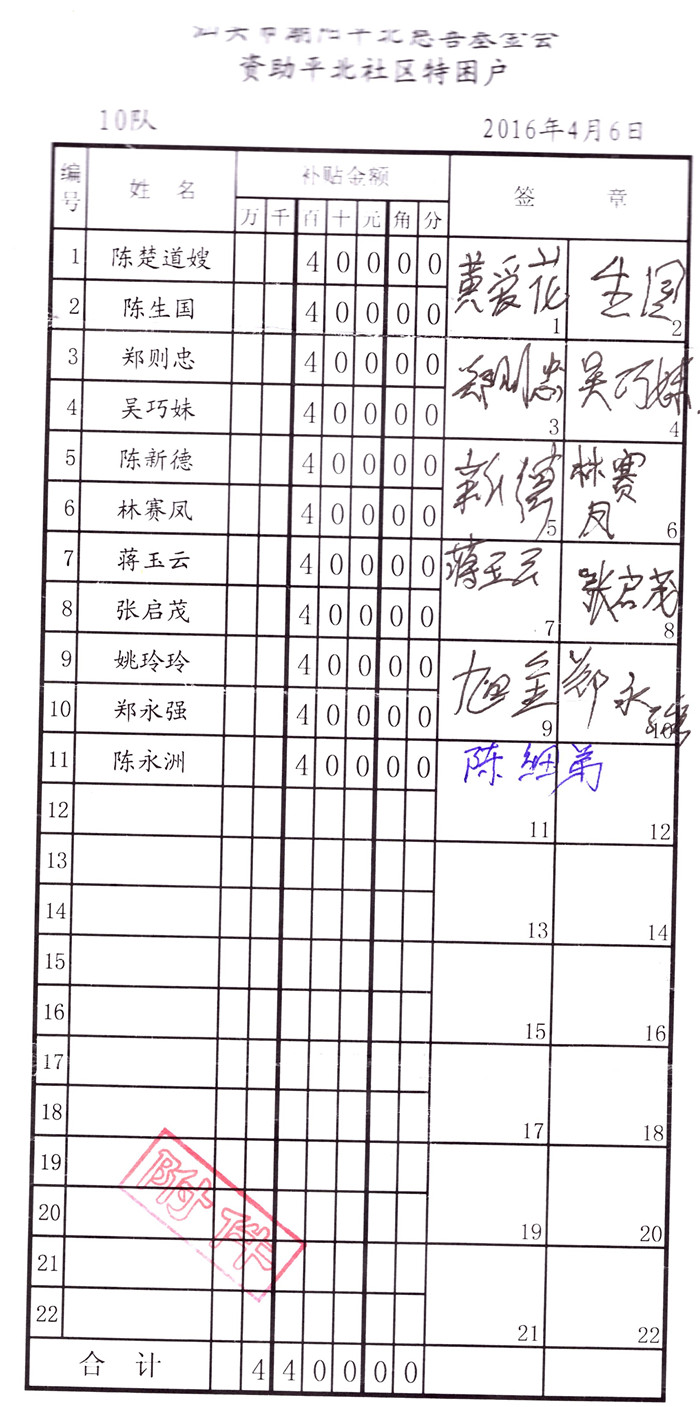 汕头市潮阳平北慈善基金会
资助平北社区特困户
10队 2016年4月6日
编号 姓名 补贴金额 签章
万 千 百 十 元 角 分
1 陈楚道嫂 4 0 0 0 0 黄爱花 1 生国 2
2 陈生国 4 0 0 0 0
3 郑则忠 4 0 0 0 0 郑则忠 3 吴巧妹 4
4 吴巧妹 4 0 0 0 0
5 陈新德 4 0 0 0 0 新德 5 林赛凤 6
6 林赛凤 4 0 0 0 0
7 蒋玉云 4 0 0 0 0 蒋玉云 7 张启茂 8
8 张启茂 4 0 0 0 0
9 姚玲玲 4 0 0 0 0 旭金 9 郑永强
10 郑永强 4 0 0 0 0
11 陈永洲 4 0 0 0 0 陈细弟
12 11 12
13
14 13 14
15
16 15 16
17
18 17 18
19
20 19 20
21
22 21 22
附件
合计 4 4 0 0 0 0